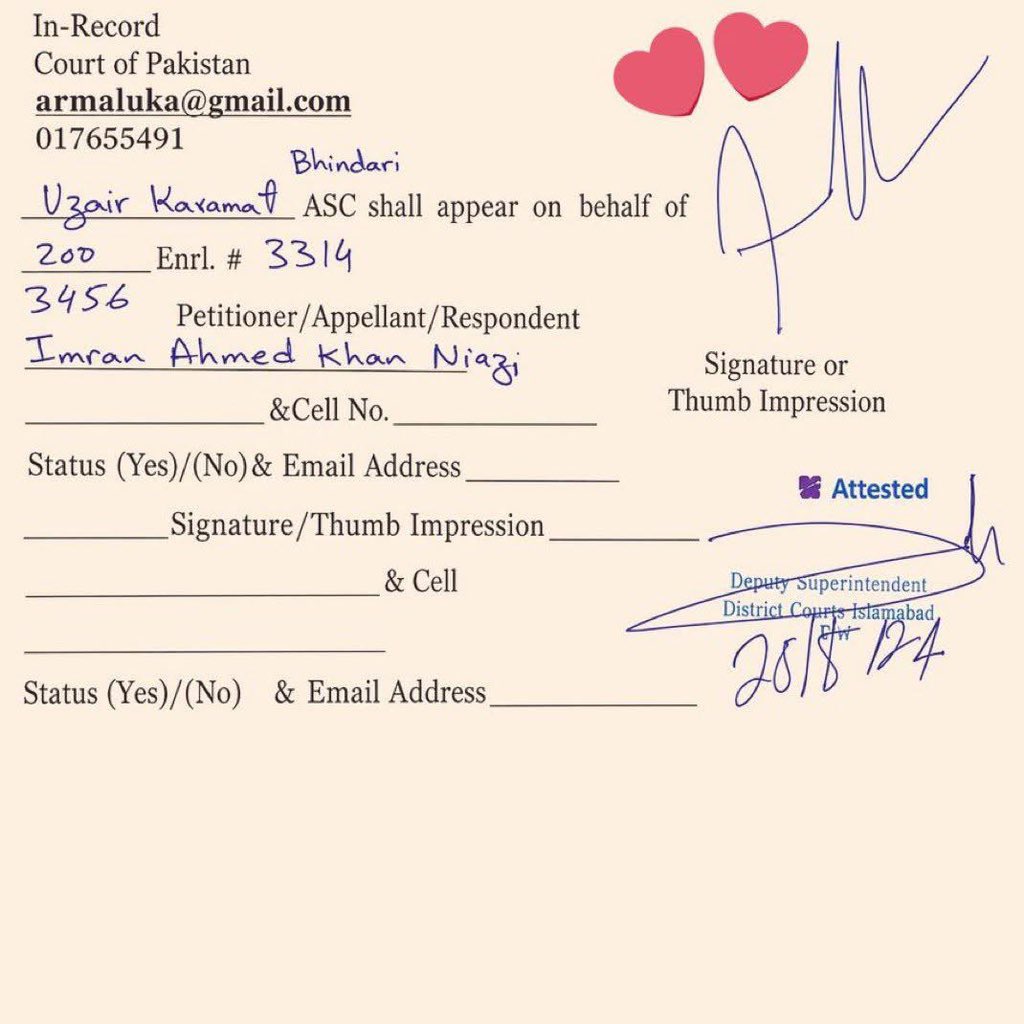 In-Record
Court of Pakistan
armaluka@gmail.com
017655491
Bhindari
Uzair Karamat ASC shall appear on behalf of
200 Enrl. # 3314
3456 Petitioner/Appellant/Respondent
Imran Ahmed Khan Niazi
&Cell No.
Status (Yes)/(No)& Email Address
Signature/Thumb Impression
& Cell
Status (Yes)/(No) & Email Address
Signature or
Thumb Impression
Attested
Deputy Superintendent
District Courts Islamabad